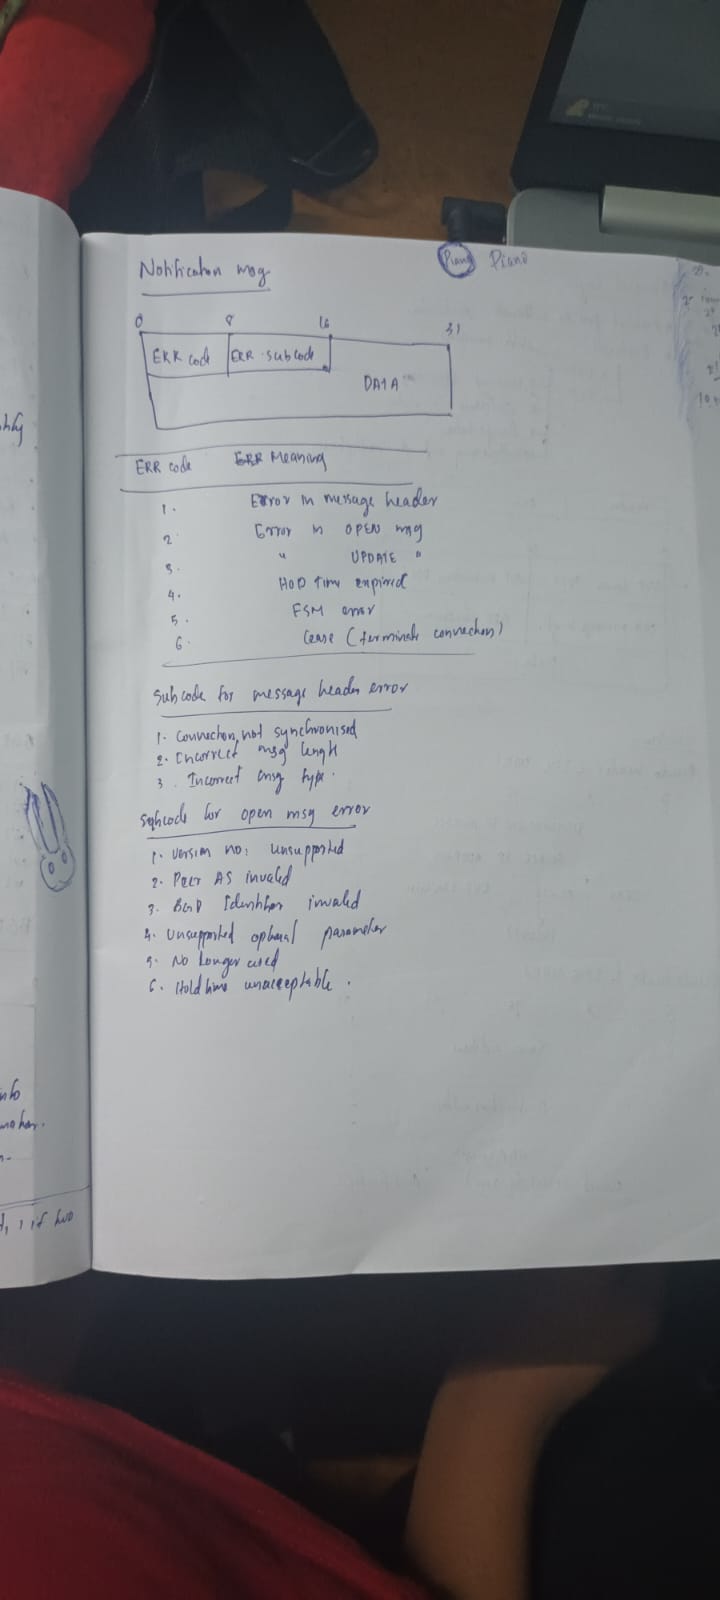 Notification msg
Piano Piano
0 8 16 31
ERR code ERR subcode
DATA
ERR code Meaning
1. Error in message header
2. Error in OPEN msg
3. " UPDATE "
4. HOD time expired
5. FSM error
6. Cease (terminate connection)
Subcode for message header error
1. Connection not synchronised
2. Incorrect msg length
3. Incorrect msg type.
Subcode for open msg error
1. version no: unsupported
2. Peer AS invalid
3. BGP Identifier invalid
4. Unsupported optional parameter
5. No longer used
6. Hold time unacceptable.
info
if two